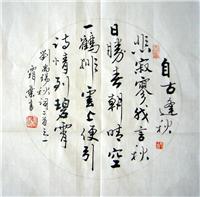 自古逢秋
悲寂寥我言秋
日勝春朝晴空
一鶴排雲上便引
詩情到碧霄
劉禹錫秋词二首之一